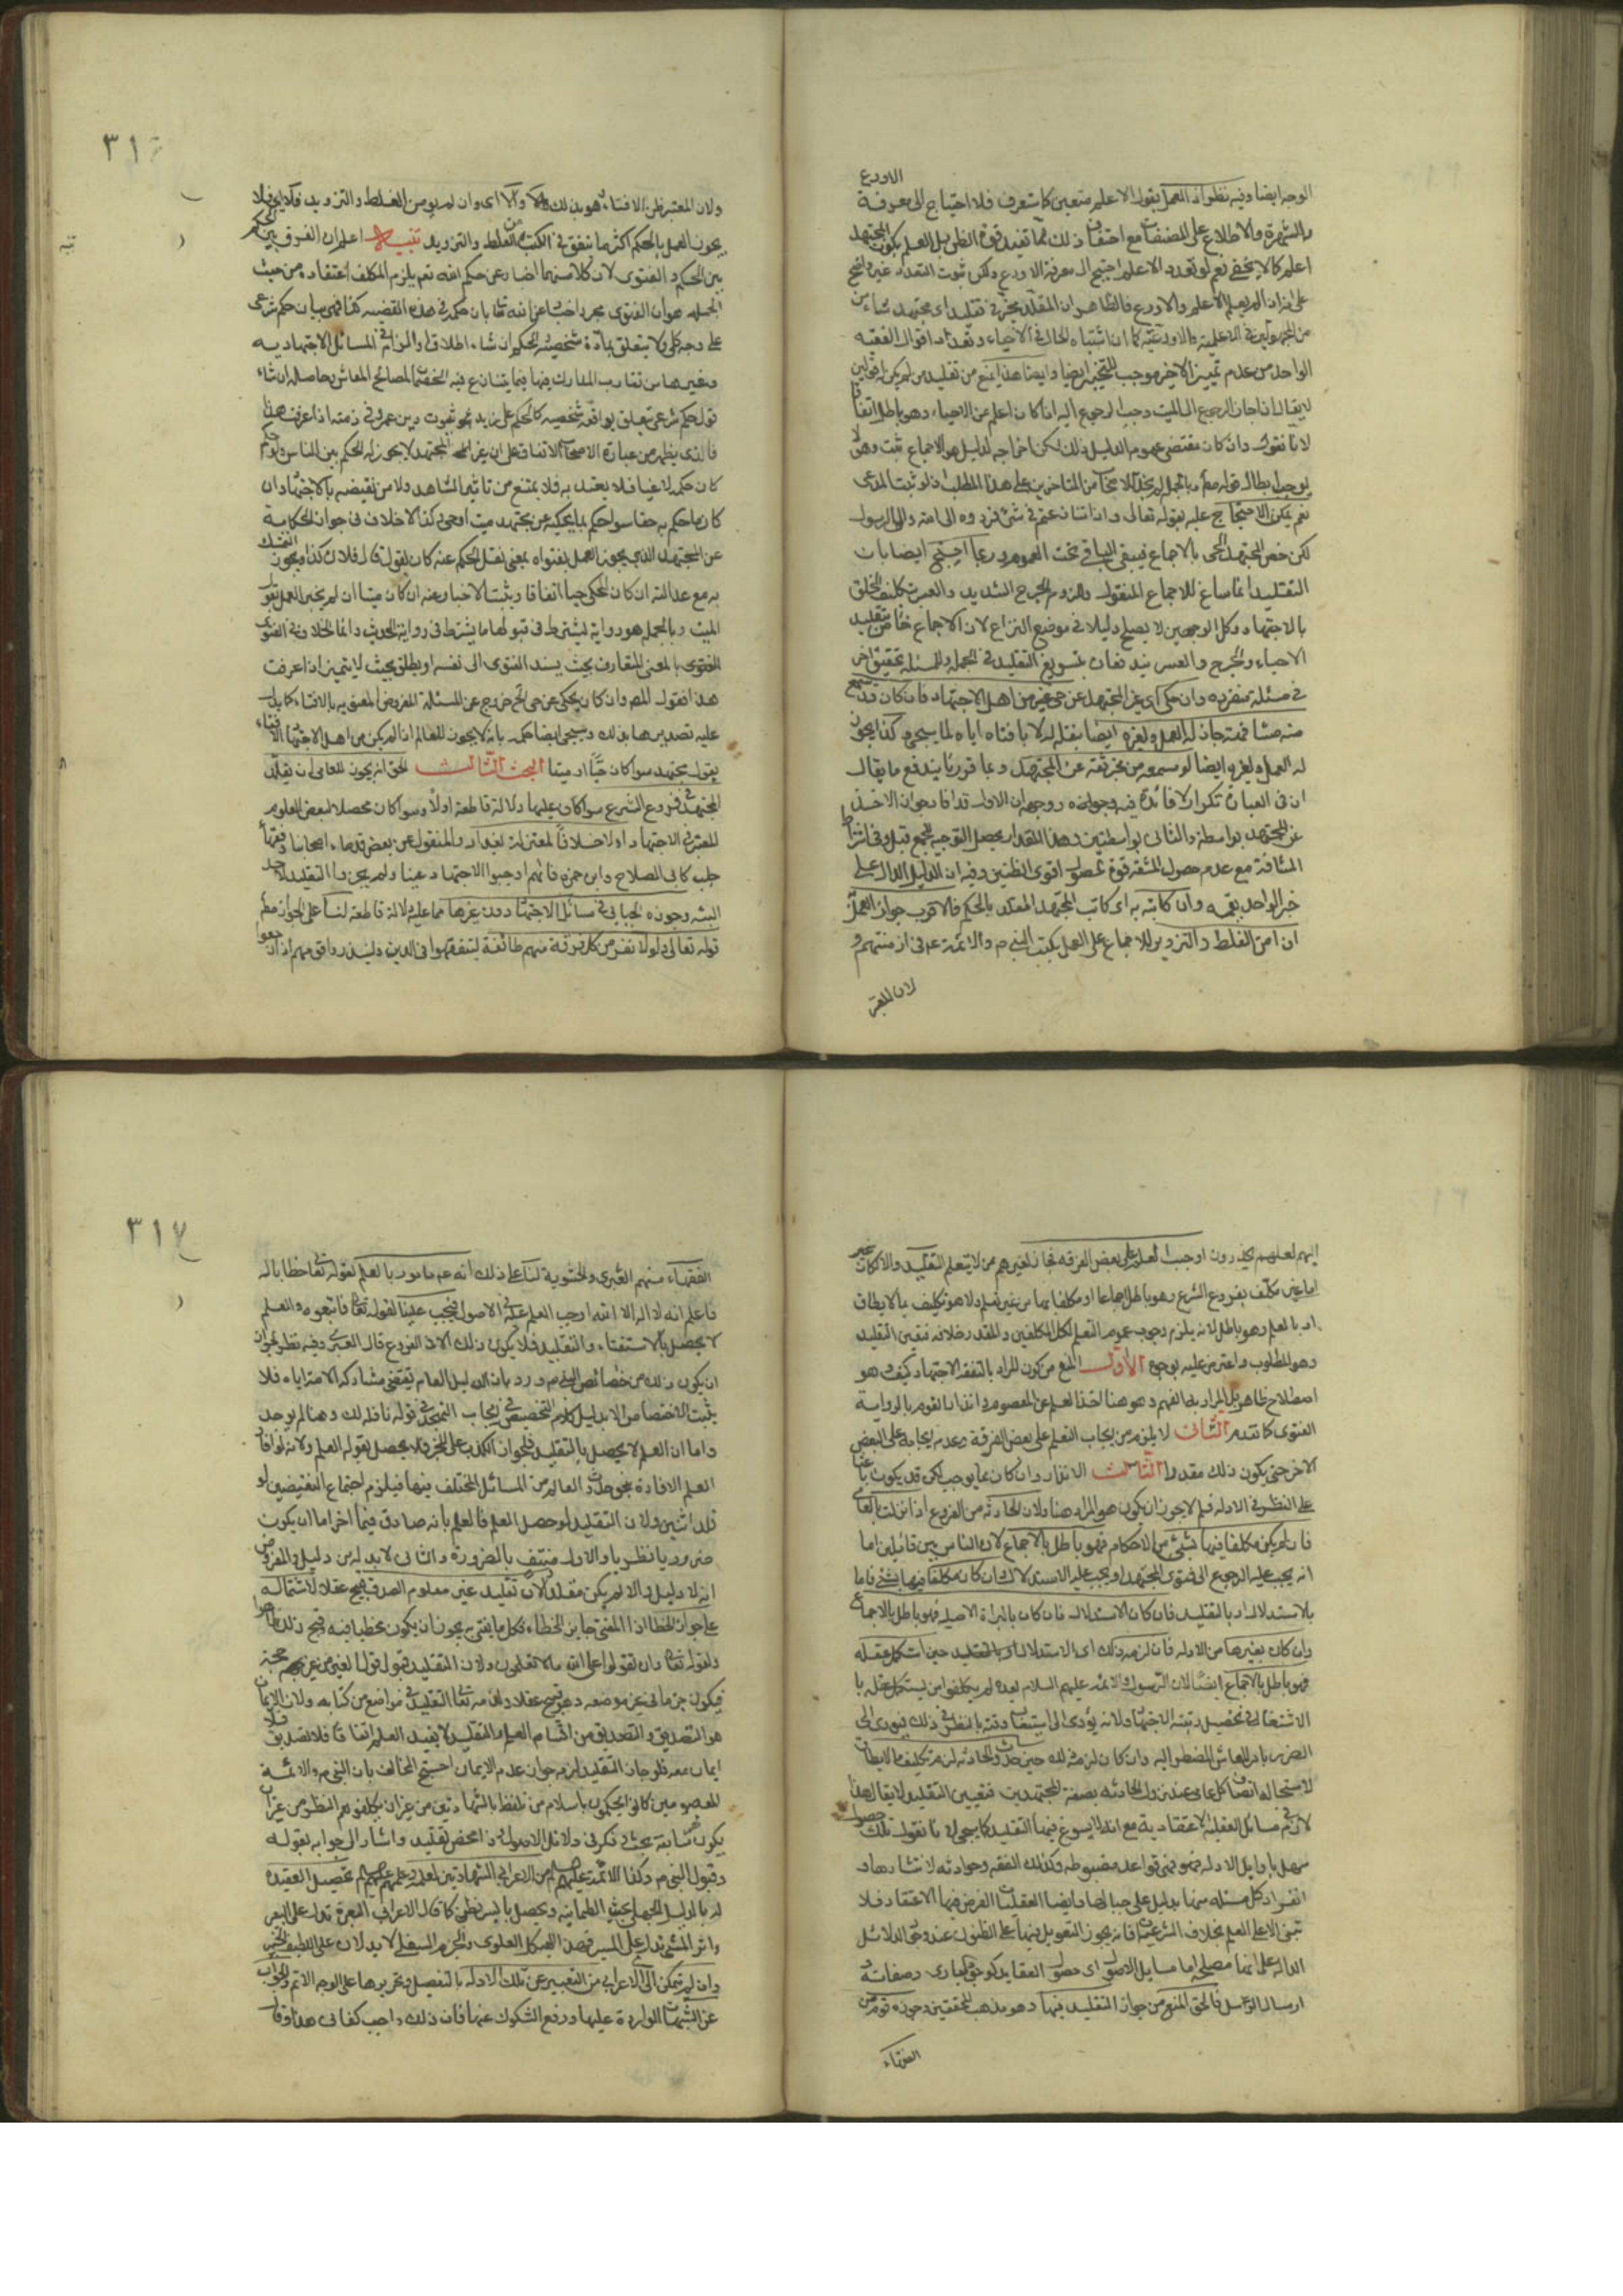 الاورع
الوجه ايضا وفيه نظر اذ العمل بقول الاعلم متعين كما ستعرف فلا احتياج الى معرفة
بالشهرة والاطلاع على المصنفات مع احتفاف ذلك مما تفيد قوة الظن بل العلم بكون المجتهد
اعلم كما لا يخفى نعم لو تعدد الاعلم احتيج الى معرفة الاورع ولكن ثبوت التعدد غير واضح
على انه ان لم يعلم الاعلم والاورع فالظاهر ان المقلد مخير في تقليد اي مجتهد شاء من
من المجهولين في الاعلمية والاورعية كما ان اشتباه الحال في الاحياء وتعداد اقوال الفقيه
الواحد من عدم تمييز الاخير موجب للتخيير ايضا وايضا هذا يمنع من تقليد من لم يكن له قولين
لا يقال اذا جاز الرجوع الى الميت وجب الرجوع اليه اذا كان اعلم من الاحياء وهو باطل اتفاقا
لانا نقول وان كان مقتضى عموم الدليل ذلك لكن اخراجه لدليل هو الاجماع ثبت وهو لا
يوجب ابطال قوله مطلقا وبالجملة لم يحد الاصحاب من المتاخرين على هذا المطلب اذ لو ثبت المدعى
نعم يمكن الاحتجاج عليه بقوله تعالى وان تنازعتم في شئ فردوه الى الله والى الرسول
لكن خص المجتهد الحى بالاجماع فيبقى الباقي تحت العموم وربما احتج ايضا بان
التقليد انما ساغ للاجماع المنقول ولزوم الحرج الشديد والعسر بتكليف الخلق
بالاجتهاد وكل الوجهين لا يصلح دليلا في موضع النزاع لان الاجماع خاص بتقليد
الاحياء والحرج والعسر يندفعان بتسويغ التقليد في الجملة وللمسئلة تحقيق اخر
في مسئلة منفردة وان حكى اى غير المجتهد عن حى غيره من اهل الاجتهاد فان كان قد سمع
منه مشافهة جاز له العمل ولغيره ايضا بنقله له لا بافتاه اياه لما سيجى وكذا يجوز
له العمل ولغيره ايضا لو سمعه من مخبر ثقة عن المجتهد وبما قررنا يندفع ما يقال
ان في العبارة تكرار لا فائدة فيه وجوابه ووجهه ان الاول قد افاد جواز الاخذ
عن المجتهد بواسطة والثاني بواسطتين وهذا القدر يحصل التوجيه للجمع قبل وفي اشتراط
المشافهة مع عدم حصول المشقة قوة لحصول اقوى الظنين وفيه ان الدليل الدال على
خبر الواحد يعمه وان كاتبه به اى كاتب المجتهد المقلد بالحكم فالاقرب جواز العمل
ان امن الغلط والتزوير للاجماع على العمل بكتب النبي م والائمة ع في ازمنتهم و
لان المعتبر
٣١٦
ولان المعتبر ظن الافتاء وهو بذلك والا اى وان لم يومن الغلط والتزوير فلا اى فلا
يجوز العمل بالحكم اكثر ما تتفق في الكتب من الغلط والتزوير تنبيه اعلم ان الفرق بين الحكم
بين الحكم والفتوى لان كلا منهما اخبار عن حكم الله نعم يلزم المكلف اعتقاده من حيث
الجملة هو ان الفتوى مجرد اخبار عن الله تعالى بان حكمه في هذه القضية كذا فهى بيان حكم شرعى
على وجه كلى لا يتعلق بمادة شخصية والحكم انشاء اطلاق او الزام في المسائل الاجتهادية
وغيرها من تقارب المدارك فيها مما يتنازع فيه الخصمان لمصالح المعاش وحاصله انشاء
قول حكم شرعى يتعلق بواقعة شخصية كالحكم على زيد بثبوت دين عمرو في ذمته اذا عرفت هذا
فالذى يظهر من عبارة الاصحاب الاتفاق على ان غير المجتهد لا يجوز له الحكم بين الناس ولو حكم
كان حكمه لاغيا فلا يعتد به فلا يمتنع من تاثيم الشاهد ولا من نقيضه بالاجتهاد وان
كان ما حكم به حقا سواء حكم بما يحكيه عن مجتهد ميت او حى وكذا لا خلاف في جواز الحكاية
عن المجتهد الذي يجوز العمل بفتواه بمعنى نقل الحكم عنه كان يقول قال فلان كذا ويجوز التمسك
به مع عدالته ان كان المحكى حيا اتفاقا ويثبت الاخبار عنه ان كان ميتا ان لم يجز العمل بقول
الميت وبالجملة هو رواية يشترط في قبولها ما يشترط في رواية الحديث وانما الخلاف في الفتوى
الفتوى بالمعنى المتعارف بحيث يسند الفتوى الى نفسه او يطلق بحيث لا يتميز اذا عرفت
هذا فقول المصر وان كان يحكى عن حى الخ خروج عن المسئلة المفروض المعنونة بالافتاء كما يدل
عليه تصديرها بذلك وسيجى ايضا حكمه بانه لا يجوز للعالم اذا لم يكن من اهل الاجتهاد الافتاء
بقول مجتهد سواء كان حيا او ميتا البحث الثالث الحق انه يجوز للعامى ان يقلد
المجتهد في فروع الشرع سواء كان عليها دلالة قاطعة اولا وسواء كان محصلا لبعض العلوم
المعتبرة في الاجتهاد اولا خلافا لمعتزلة بغداد والمنقول عن بعض قدماء اصحابنا وفقهاء
حلب كابى الصلاح وابن حمزه فانهم اوجبوا الاجتهاد عينا ولم يجوزوا التقليد لاحد
البتة وجوزه الجبائي في مسائل الاجتهاد دون غيرها مما عليه دلالة قاطعة لنا على الجواز مطلقا
قوله تعالى فلولا نفر من كل فرقة منهم طائفة ليتفقهوا في الدين ولينذروا قومهم اذا رجعوا
تنبيه
اليهم لعلهم يحذرون اوجب التعلم على بعض الفرقة فجاز لغيرهم ممن لا يتعلم التقليد والا لكان غير
اما غير مكلف بفروع الشرع وهو باطل اجماعا او مكلفا بها من غير تعلم ولا هو تكليف بما لا يطاق
او بالعلم وهو باطل لانه يلزم وجوب عموم التعلم لكل المكلفين والمقدر خلافه فتعين التقليد
وهو المطلوب واعترض عليه بوجوه الاول المنع من كون المراد بالتفقه الاجتهاد كيف وهو
اصطلاح ظاهر بل المراد بها الفهم وهو هنا اخذ العلم عن المعصوم وانذار القوم بالرواية
الفتوى كما تقدم الثاني لا يلزم من ايجاب التعلم على بعض الفرقة وعدم ايجابه على البعض
الاخر حتى يكون ذلك مقدرا الثالث الانذار وان كان بما يوجب لكن قد يكون باعثا
على النظر في الادلة فلم لا يجوز ان يكون هو المراد هنا ولان الحادثة من الفروع اذا نزلت بالعامى
فان لم يكن مكلفا فيها بشئ من الاحكام فهو باطل بالاجماع لان الناس بين قائلين اما
انه يجب عليه الرجوع الى فتوى المجتهد او يجب عليه الاستدلال وان كان مكلفا فيها بشئ فاما
بالاستدلال او بالتقليد فان كان الاستدلال فان كان بالبراءة الاصلية فهو باطل بالاجماع
وان كان بغيرها من الادلة فان لزمه ذلك اى الاستدلال او بالتقليد حين استكمل عقله
فهو باطل بالاجماع ايضا لان الرسول والائمة عليهم السلام لم يكلفوا من يستكمل عقله با
الاشتغال في تحصيل رتبة الاجتهاد ولانه يؤدى الى استيعاب وقته بالنظر في ذلك فيؤدى الى
الضرر بامر المعاش المضطر اليه وان كان لزمه ذلك حين حدوث الحادثة لزم تكليف ما لا يطاق
لاستحالة اتصاف كل عامى عند نزول الحادثة بصفة المجتهدين فتعيين التقليد لا يقال هذا
لازم في مسائل العقلية الاعتقادية مع انه لا يسوغ فيها التقليد كما سيجى لانا نقول تلك حصولها
سهل باوايل الادلة فهو في قواعد مضبوطة وكذلك الفقه وحوادثه لانتشارها و
انفراد كل مسئلة منها بدليل على حيالها وايضا العقليات الغرض فيها الاعتقاد فلا
تبتنى الا على العلم بخلاف الشرعيات فانه يجوز التعويل فيها على الظنون عند وجود الدلائل
الدالة على انها مصلحة اما مسايل الاصول اى حصول العقايد كوجود البارى وصفاته و
ارسال الرسل فالحق المنع من جواز التقليد فيها وهو مذهب المحققين وجوزه قوم من
الفقهاء
٣١٧
الفقهاء منهم العنبرى والحشوية لنا على ذلك انه ع م مامور بالعلم لقوله تعالى خطابا له
فاعلم انه لا اله الا الله اوجب العلم عليه في الاصول فيجب علينا لقوله تعالى فاتبعوه والعلم
لا يحصل بالاستفتاء والتقليد فلا يكون ذلك الا في الفروع قال العبرى وفيه نظر لجواز
ان يكون ذلك من خصائص النبي م ورد بان الدليل العام يقتضى مشاركة الامة اياه فلا
يثبت الاختصاص الا بدليل كلام التخصيص في ايجاب التهجد في قوله نافلة لك وهنا لم يوجد
واما ان العلم لا يحصل بالتقليد فلجواز الكذب على المخبر فلا يحصل بقوله العلم ولانه لو افاد
العلم لافاده بنحو حدوث العالم من المسائل المختلف فيها فيلزم اجتماع النقيضين لو
قلد اثنين ولان التقليد لو حصل العلم فالعلم بانه صادق فيما اخر اما ان يكون
ضروريا او نظريا والاول منتف بالضرورة والثاني لابد له من دليل والمفروض
انه لا دليل والا لم يكن مقلدا ولان تقليد غير معلوم الصدق قبيح عقلا لاشتماله
على جواز الخطا اذ المفتى جايز الخطاء فكل ما يفتى به يجوز ان يكون مخطيا فيه وقبح ذلك ظاهر
ولقوله تعالى وان تقولوا على الله ما لا تعلمون ولان التقليد قبول قول الغير من غير حجة
فيكون جزما في غير موضعه وهو قبيح عقلا ولذمه تعالى التقليد في مواضع من كتابه ولان الايمان
هو التصديق والتصديق من اقسام العلم والتقليد لا يفيد العلم اتفاقا فلا تصديق فلا
ايمان معه فلو جاز التقليد لزم جواز عدم الايمان احتج المخالف بان النبي م والائمة
المعصومين كانوا يحكمون باسلام من تلفظ بالشهادتين من غير ان يكلفوهم النظر من غير ان
يكون هم سابقة بحث وفكر في دلائل الاصول وذا محض تقليد واشار الى جوابه بقوله
وقبول النبي م وكذا الائمة عليهم السلام من الاعرابي الشهادتين لعله وعلمهم بحصول العقيدة
له بالدليل الجملى بحيث الطمانينة ويحصل بايسر نظر كما قال الاعرابي البعرة تدل على البعير
واثر المشى تدل على المسير فهذا الهيكل العلوى والجزم السفلى لا يدلان على اللطيف الخبير
وان لم يتمكن الاعرابي من التعبير عن تلك الادلة بالتفصيل وتحريرها على الوجه الاتم والجواب
عن الشبهات الواردة عليها ودفع الشكوك عنها فان ذلك واجب كفائى هذا وقال